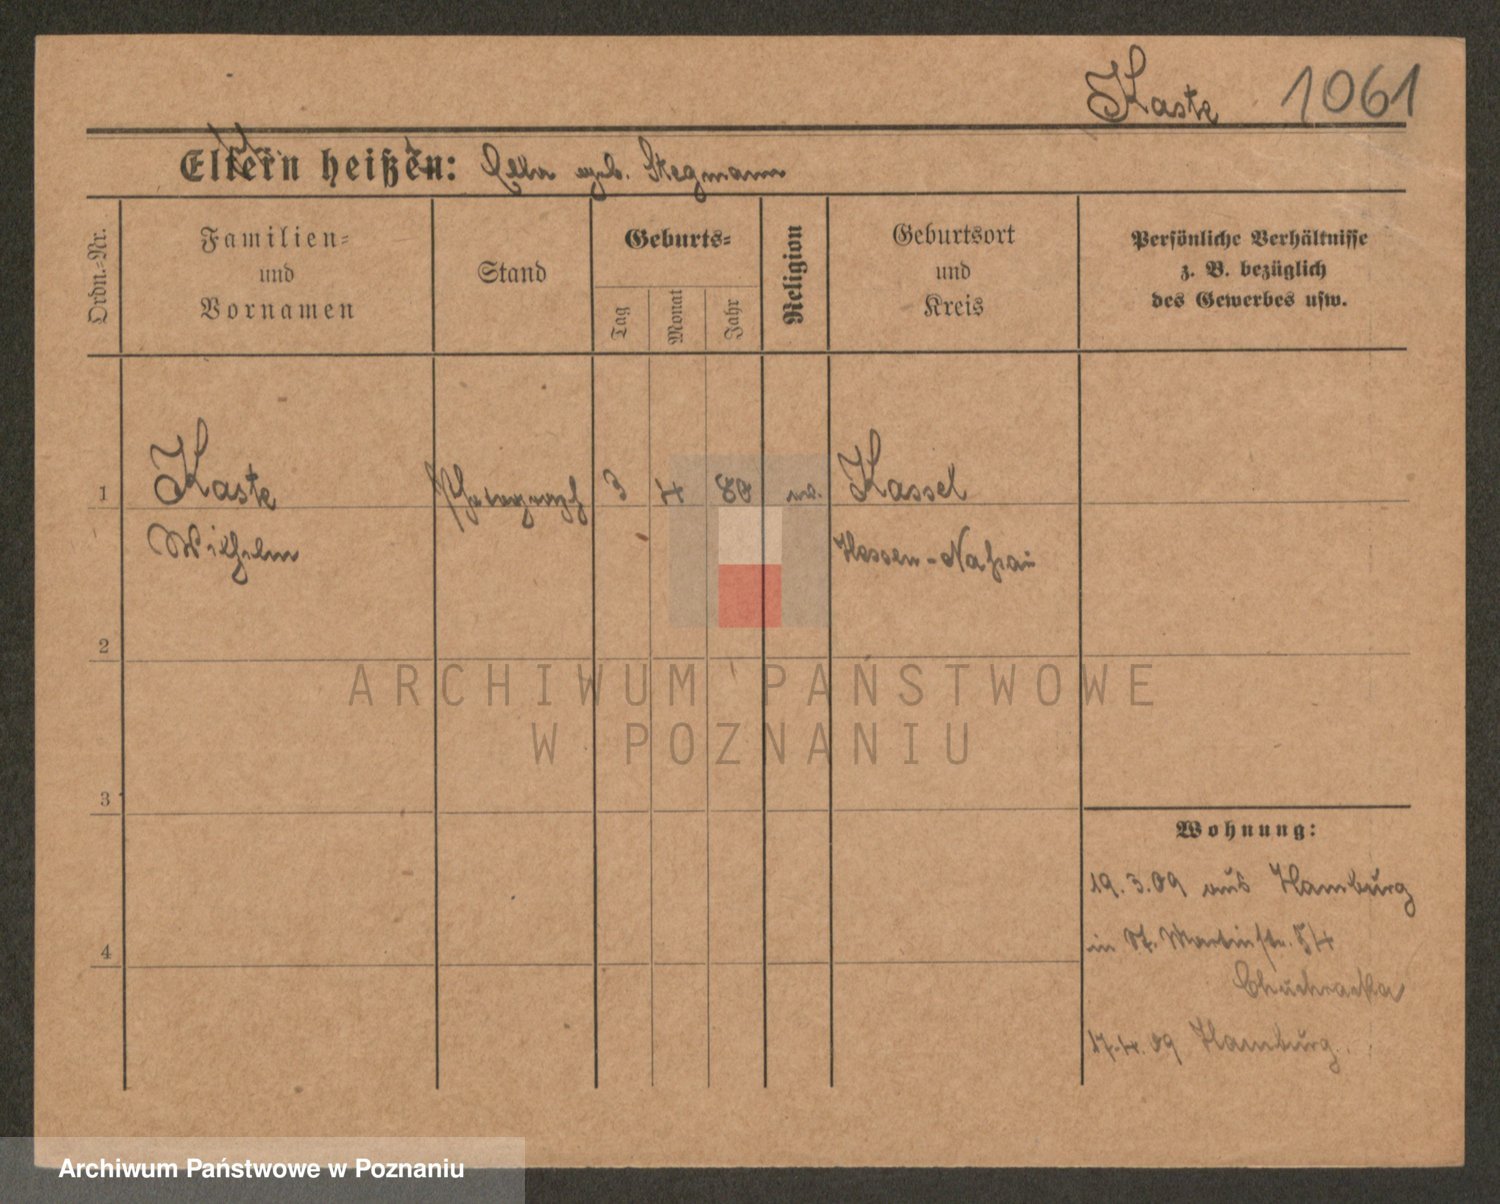 Kaste 1061
Eltern heißen: Ella geb. Stegmann
Ordn.-Nr.
Familien-
und
Vornamen
Stand
Geburts-
Tag
Monat
Jahr
Religion
Geburtsort
und
Kreis
Persönliche Verhältnisse
z. B. bezüglich
des Gewerbes usw.
1 Kaste Photograph 3 4 80 ev. Kassel
Wilhelm Hessen-Nassau
2
3
4
Wohnung:
19.3.09 aus Hamburg
in St. Martinstr. 54
17.4.09 Hamburg.
ARCHIWUM PAŃSTWOWE
W POZNANIU
Archiwum Państwowe w Poznaniu